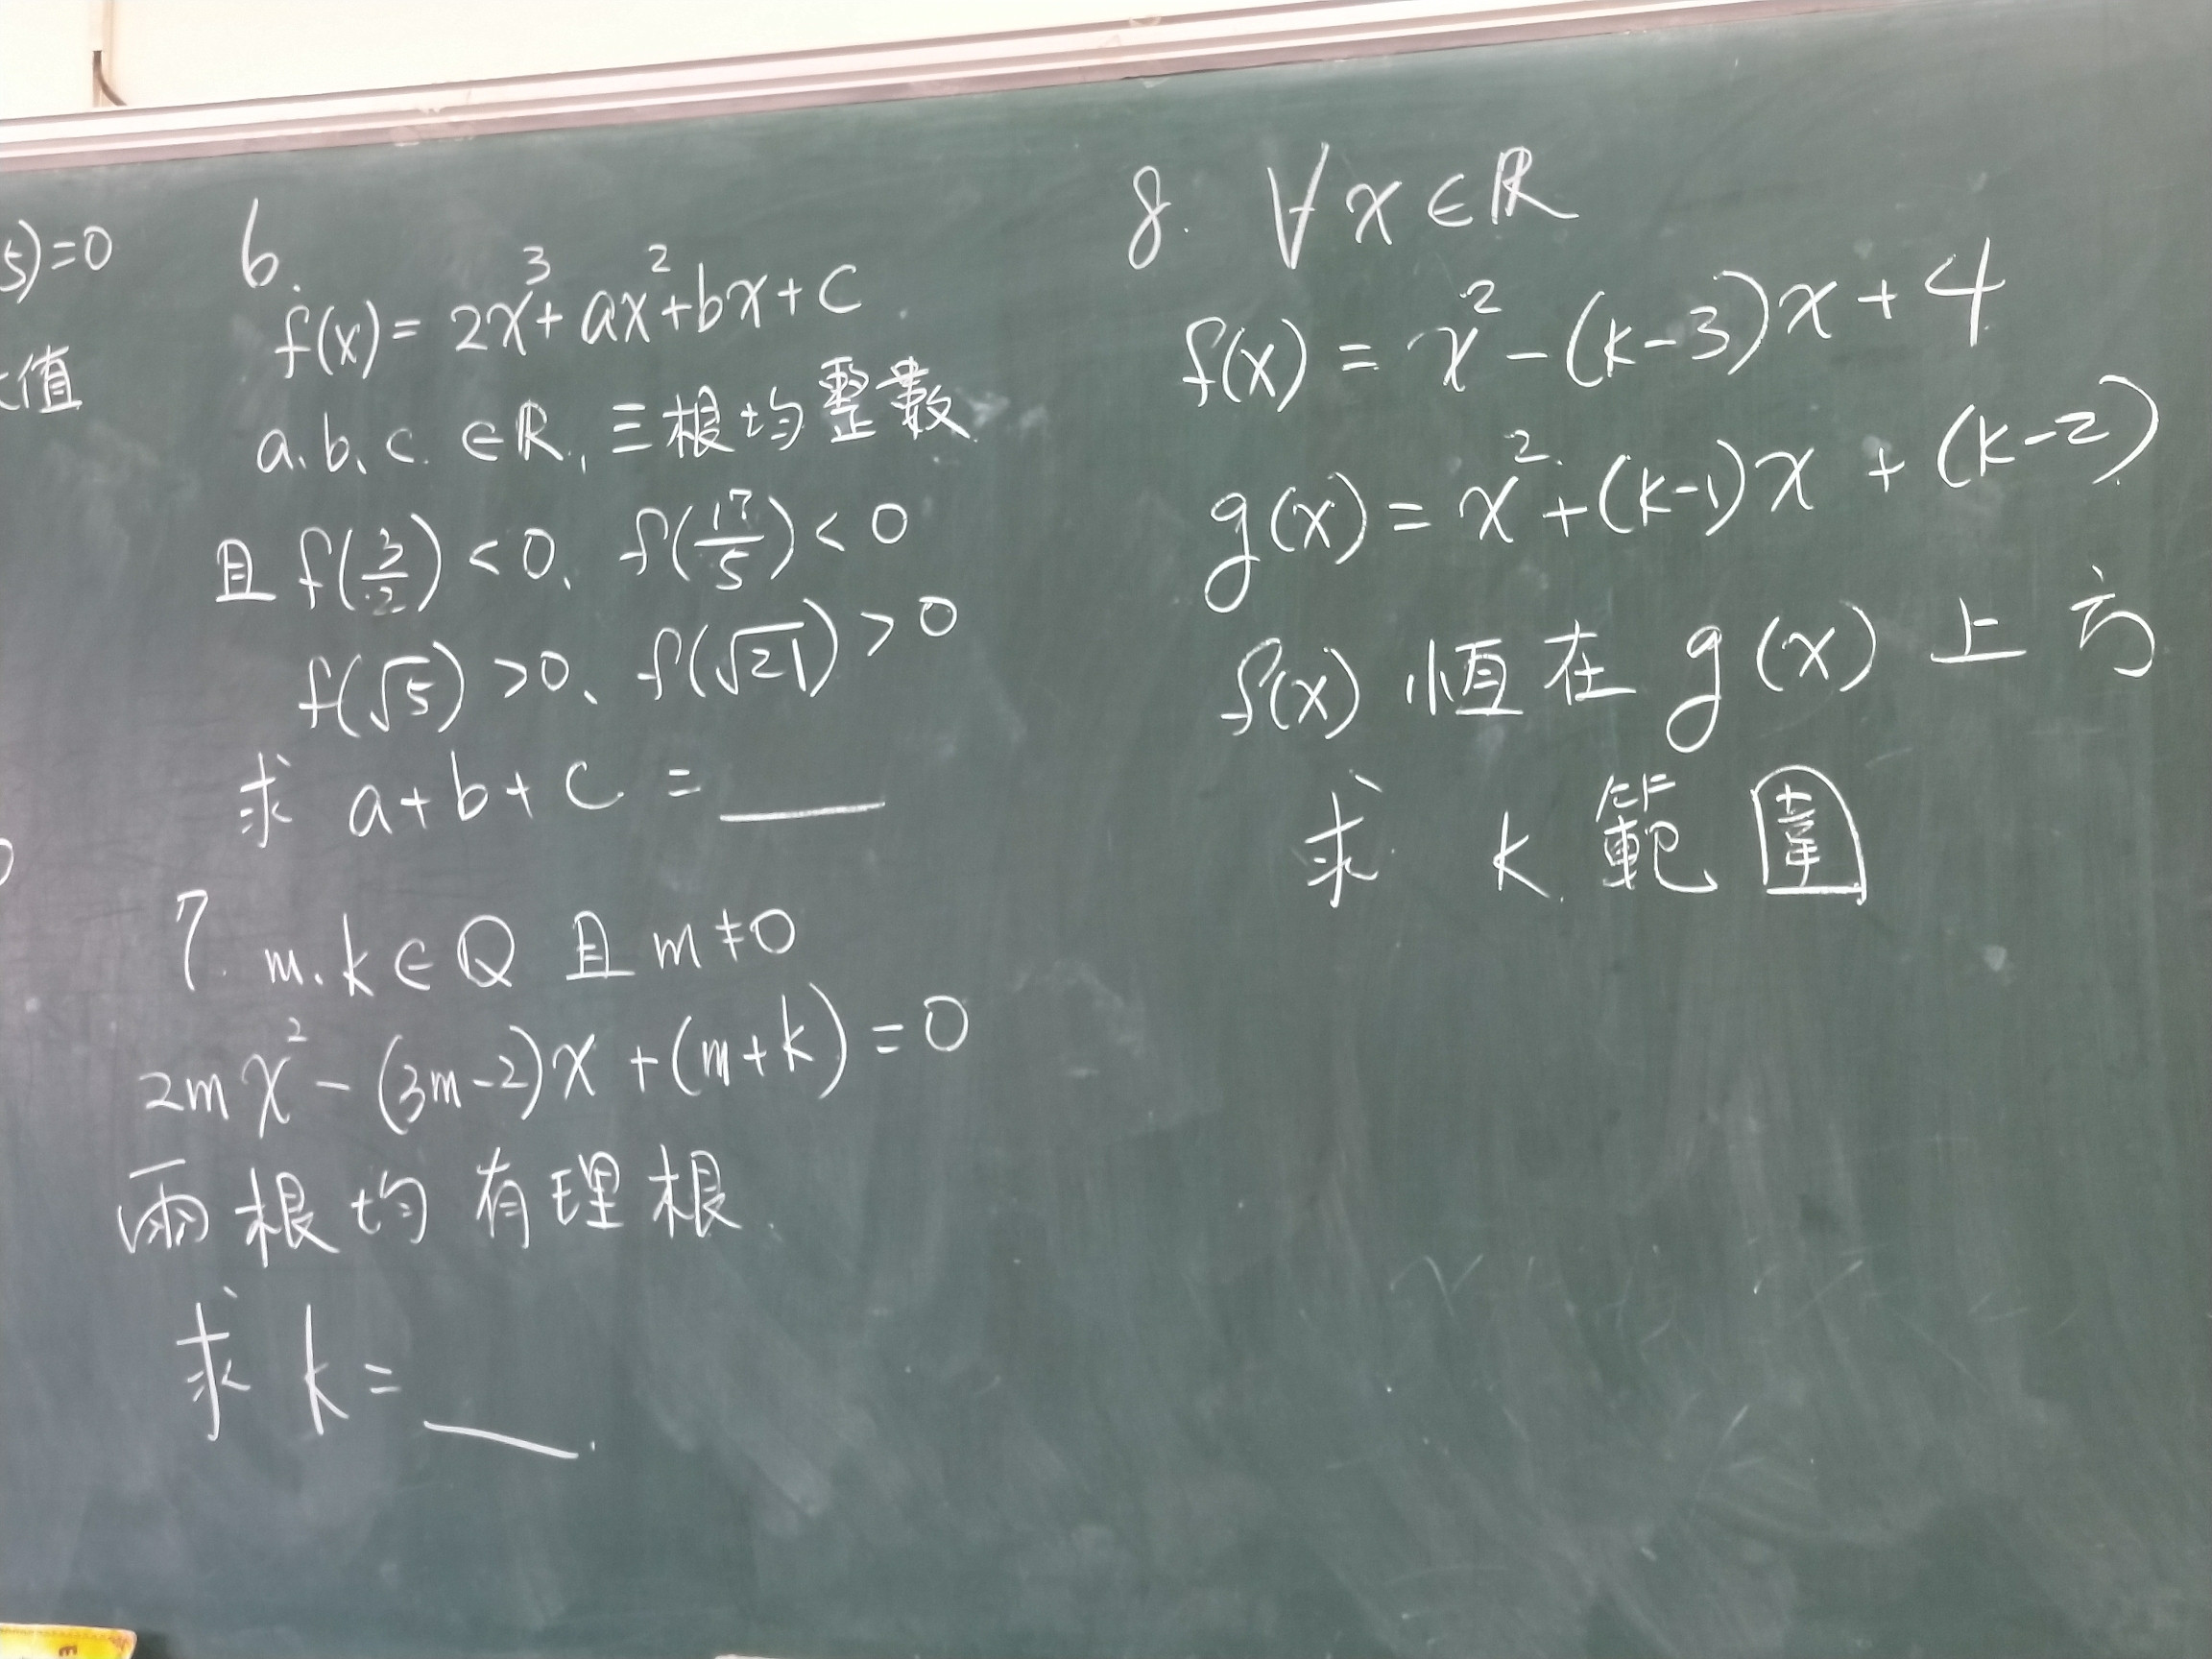 5)=0
值
6.
f(x) = 2x³+ax²+bx+c
a、b、c ∈ℝ, 三根均整數
且 f(3/2) < 0、 f(17/5) < 0
f(√5) > 0、 f(√21) > 0
求 a+b+c = ____
7. m、k ∈ ℚ 且 m≠0
2mx² - (3m-2)x + (m+k) = 0
兩根均有理根.
求 k = ____.
8. ∀x∈ℝ
f(x) = x² - (k-3)x + 4
g(x) = x² + (k-1)x + (k-2)
f(x) 恆在 g(x) 上方
求 k 範圍
E